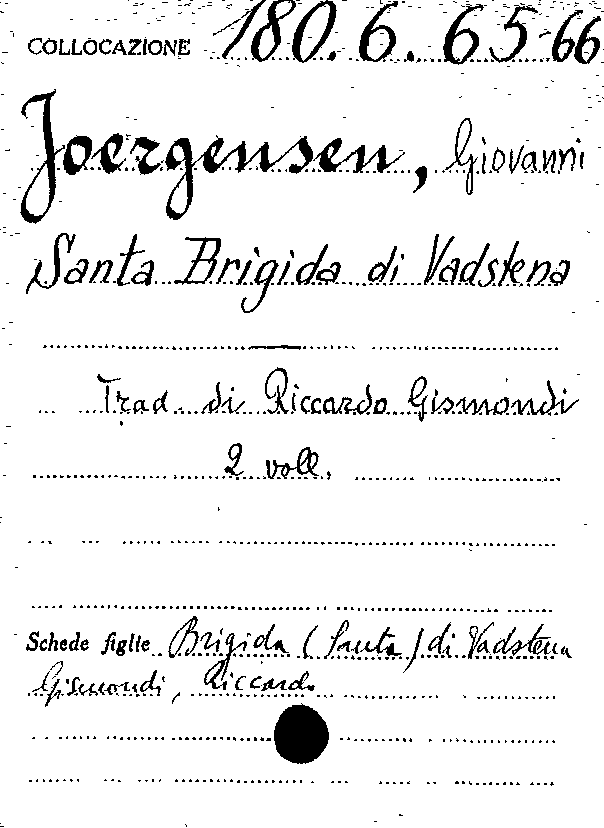 COLLOCAZIONE 180.6.65-66
Joergensen, Giovanni
Santa Brigida di Vadstena
Trad. di Riccardo Gismondi
2 voll.
Schede figlie Brigida (Santa) di Vadstena
Gismondi, Riccardo